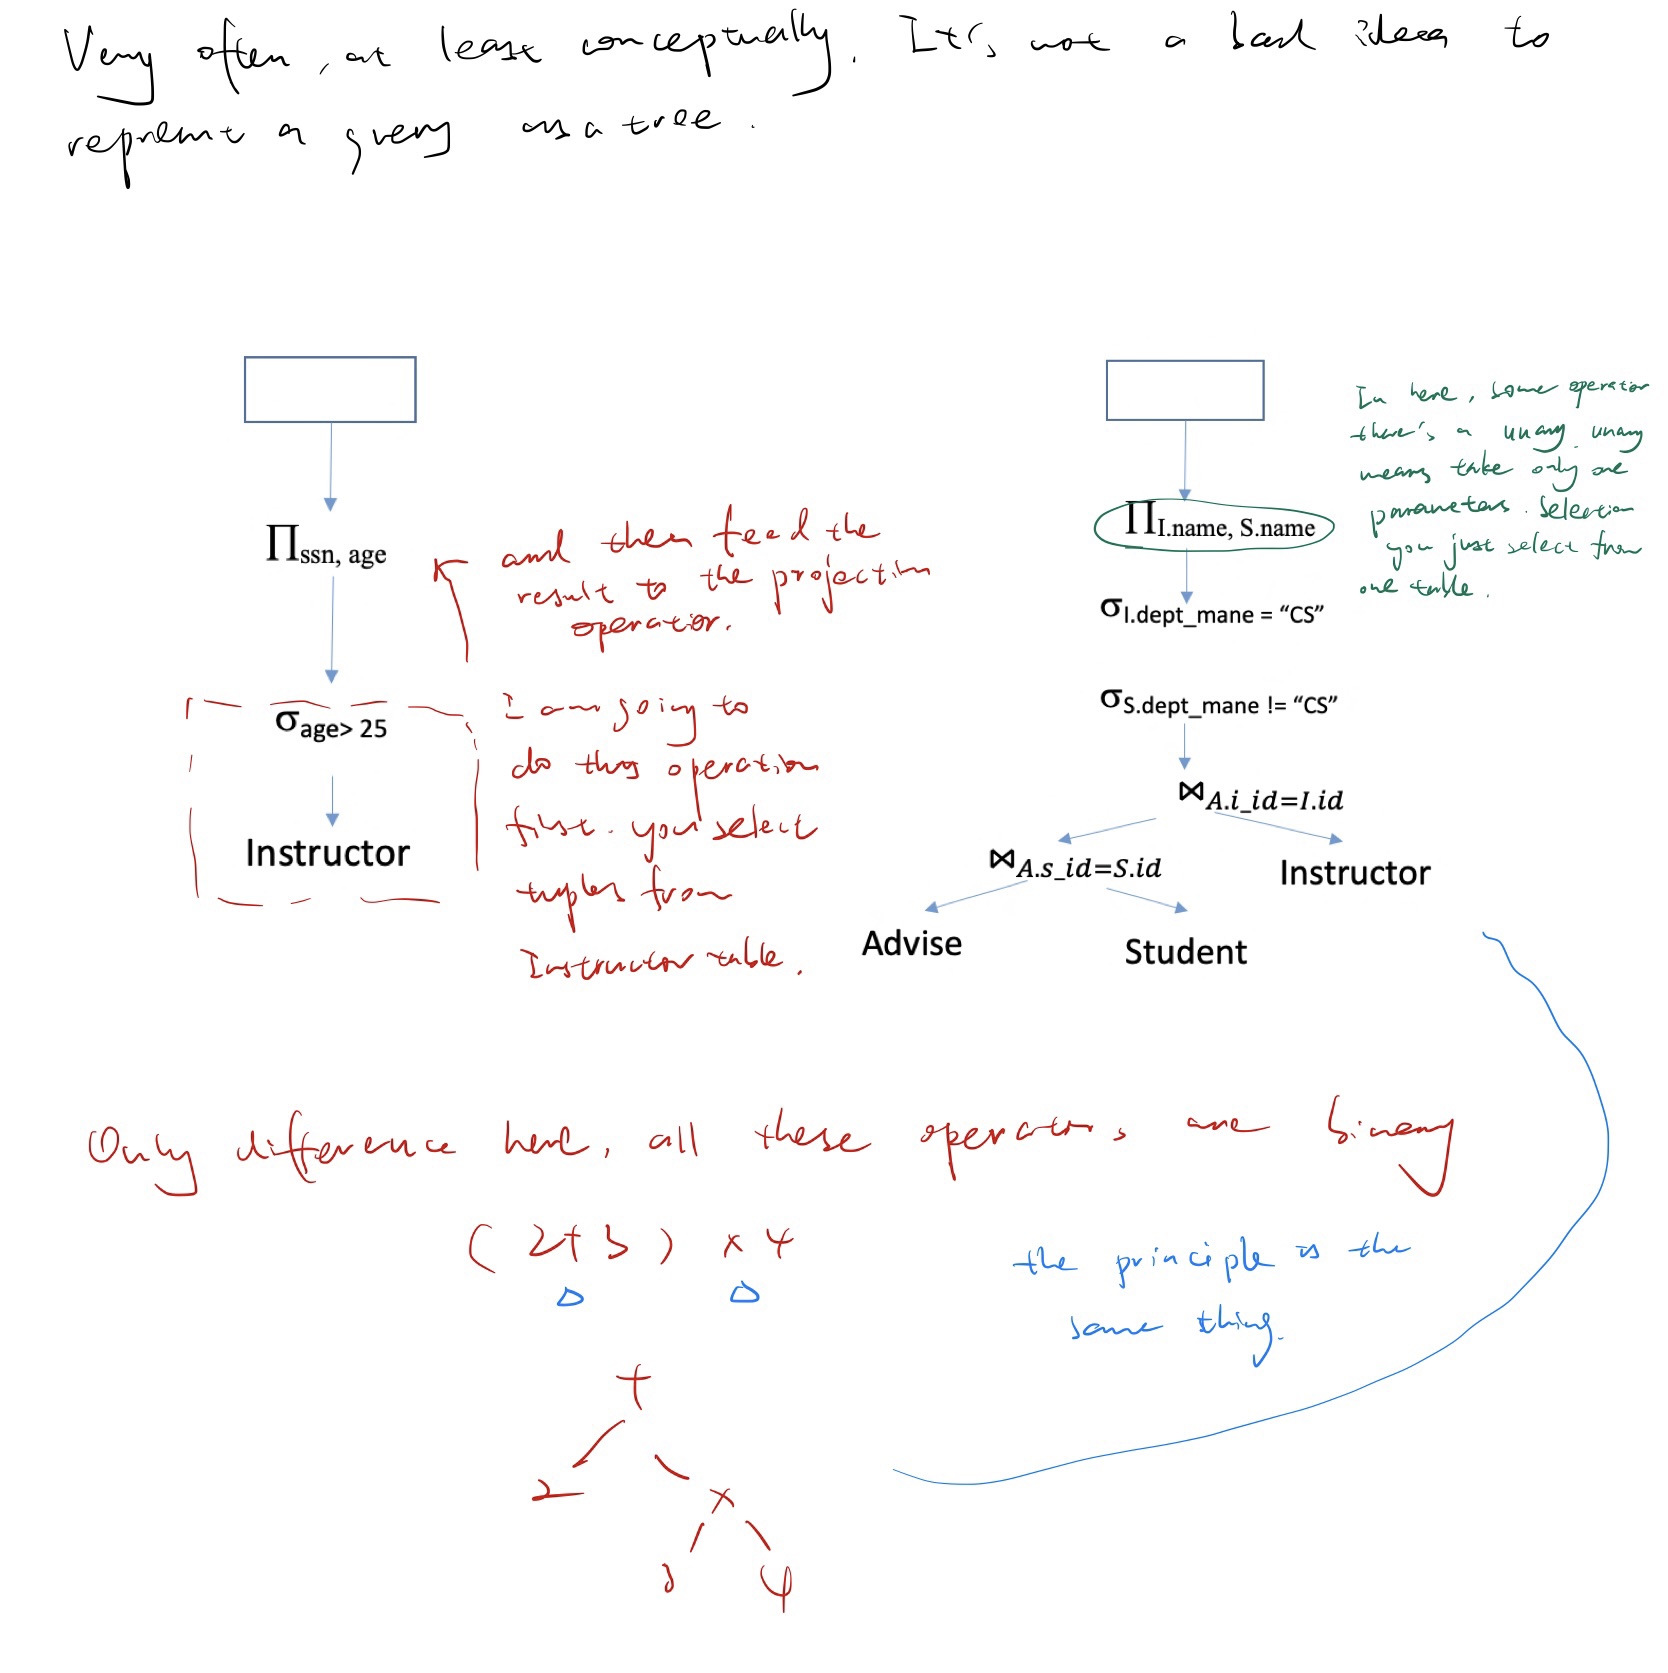 Very often, at least conceptually. It's not a bad idea to
represent a query as a tree.
∏ssn, age
and then feed the
result to the projection
operator.
σage> 25
Instructor
I am going to
do this operation
first. you select
tuples from
Instructor table.
∏I.name, S.name
In here, some operator
there's a unary. unary
means take only one
parameters. Selection
you just select from
one table.
σI.dept_mane = “CS”
σS.dept_mane != “CS”
⋈A.i_id=I.id
⋈A.s_id=S.id
Instructor
Advise
Student
Only difference here, all these operators are binary
(2+3) × 4
the principle is the
same thing.
+
2
×
3
4